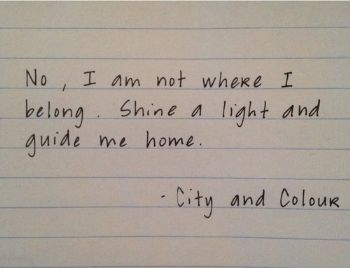 No, I am not where I
belong. Shine a light and
guide me home.
- City and Colour